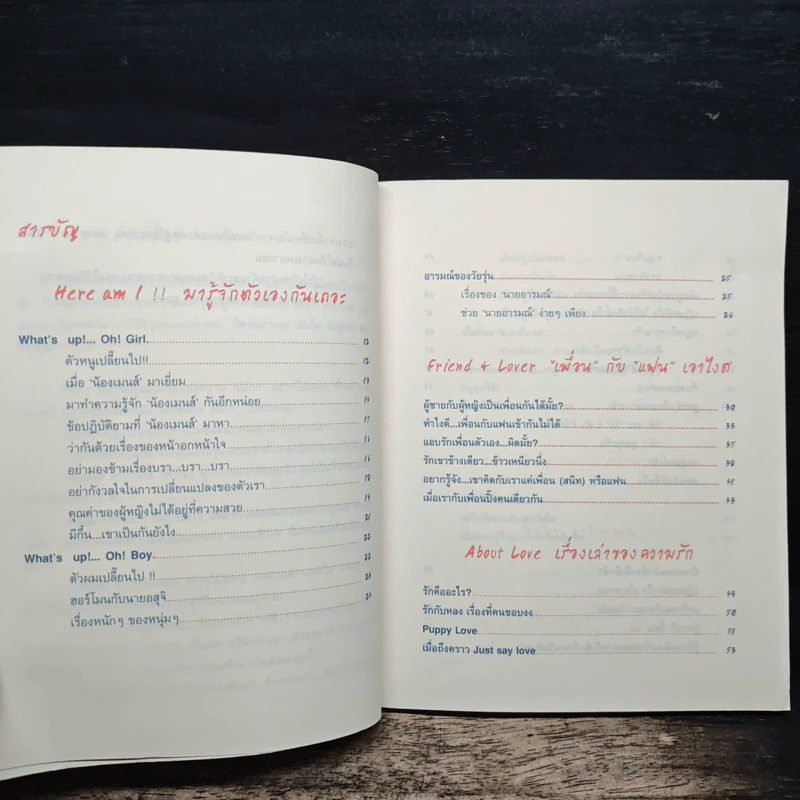 สารบัญ
Here am I !! มารู้จักตัวเองกันเถอะ
What's up!... Oh! Girl 12
ตัวหนูเปลี๊ยนไป!! 12
เมื่อ 'น้องเมนส์' มาเยี่ยม 13
มาทำความรู้จัก 'น้องเมนส์' กันอีกหน่อย 14
ข้อปฏิบัติยามที่ 'น้องเมนส์' มาหา 15
ว่ากันด้วยเรื่องของหน้าอกหน้าใจ 16
อย่ามองข้ามเรื่องบรา...บรา...บรา 17
อย่ากังวลใจในการเปลี่ยนแปลงของตัวเรา 18
คุณค่าของผู้หญิงไม่ได้อยู่ที่ความสวย 19
มีกึ๋น...เขาเป็นกันยังไง 21
What's up!... Oh! Boy 22
ตัวผมเปลี๊ยนไป !! 22
ฮอร์โมนกับนายอสุจิ
เรื่องหนักๆ ของหนุ่มๆ
อารมณ์ของวัยรุ่น 25
เรื่องของ 'นายอารมณ์' 25
ช่วย 'นายอารมณ์' ง่ายๆ เพียง 26
Friend & Lover "เพื่อน" กับ "แฟน" เอาไงดี
ผู้ชายกับผู้หญิงเป็นเพื่อนกันได้มั้ย? 30
ทำไงดี...เพื่อนกับแฟนเข้ากันไม่ได้ 33
แอบรักเพื่อนตัวเอง...ผิดมั้ย? 35
รักเขาข้างเดียว...ข้าวเหนียวนึ่ง 38
อยากรู้จัง...เขาคิดกับเราแค่เพื่อน (สนิท) หรือแฟน 41
เมื่อเรากับเพื่อนปิ๊งคนเดียวกัน 43
About Love เรื่องเล่าของความรัก
รักคืออะไร? 49
รักกับหลง เรื่องที่คนชอบงง 50
Puppy Love 51
เมื่อถึงคราว Just say love 53